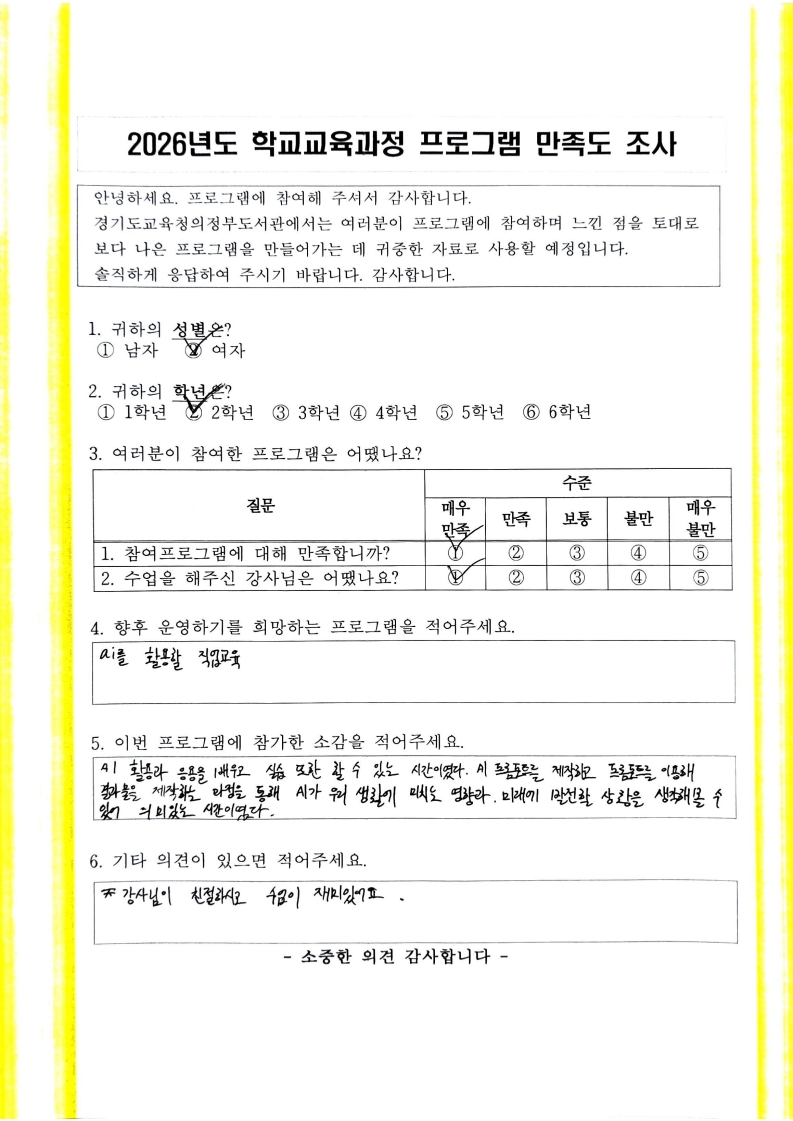 2026년도 학교교육과정 프로그램 만족도 조사
안녕하세요. 프로그램에 참여해 주셔서 감사합니다.
경기도교육청의정부도서관에서는 여러분이 프로그램에 참여하며 느낀 점을 토대로
보다 나은 프로그램을 만들어가는 데 귀중한 자료로 사용할 예정입니다.
솔직하게 응답하여 주시기 바랍니다. 감사합니다.
1. 귀하의 성별은?
① 남자 ② 여자
2. 귀하의 학년은?
① 1학년 ② 2학년 ③ 3학년 ④ 4학년 ⑤ 5학년 ⑥ 6학년
3. 여러분이 참여한 프로그램은 어땠나요?
질문 수준
매우 만족 만족 보통 불만 매우 불만
1. 참여프로그램에 대해 만족합니까? ① ② ③ ④ ⑤
2. 수업을 해주신 강사님은 어땠나요? ① ② ③ ④ ⑤
4. 향후 운영하기를 희망하는 프로그램을 적어주세요.
ai를 활용할 직업교육
5. 이번 프로그램에 참가한 소감을 적어주세요.
AI 활용과 응용을 배우고 실습 또한 할 수 있는 시간이였다. AI 프롬포트를 제작하고 프롬포트를 이용해
결과물을 제작하는 과정을 통해 AI가 우리 생활에 미치는 영향과, 미래에 발전할 상황을 생각해볼 수
있어 의미있는 시간이였다.
6. 기타 의견이 있으면 적어주세요.
강사님이 친절하시고 수업이 재미있어요.
- 소중한 의견 감사합니다 -